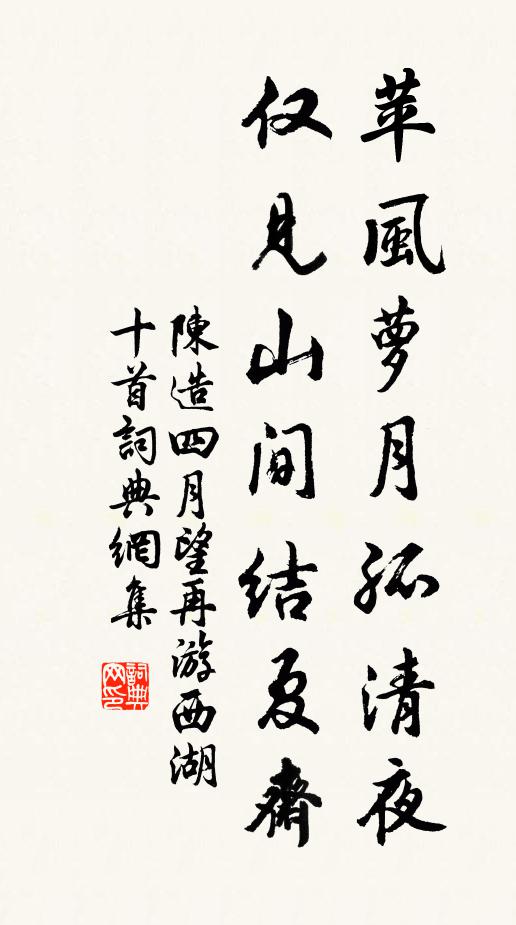 苹風萝月孤清夜
仅見山間結夏齋
陳造四月望再游西湖
十首詞典網集
詞典
网印